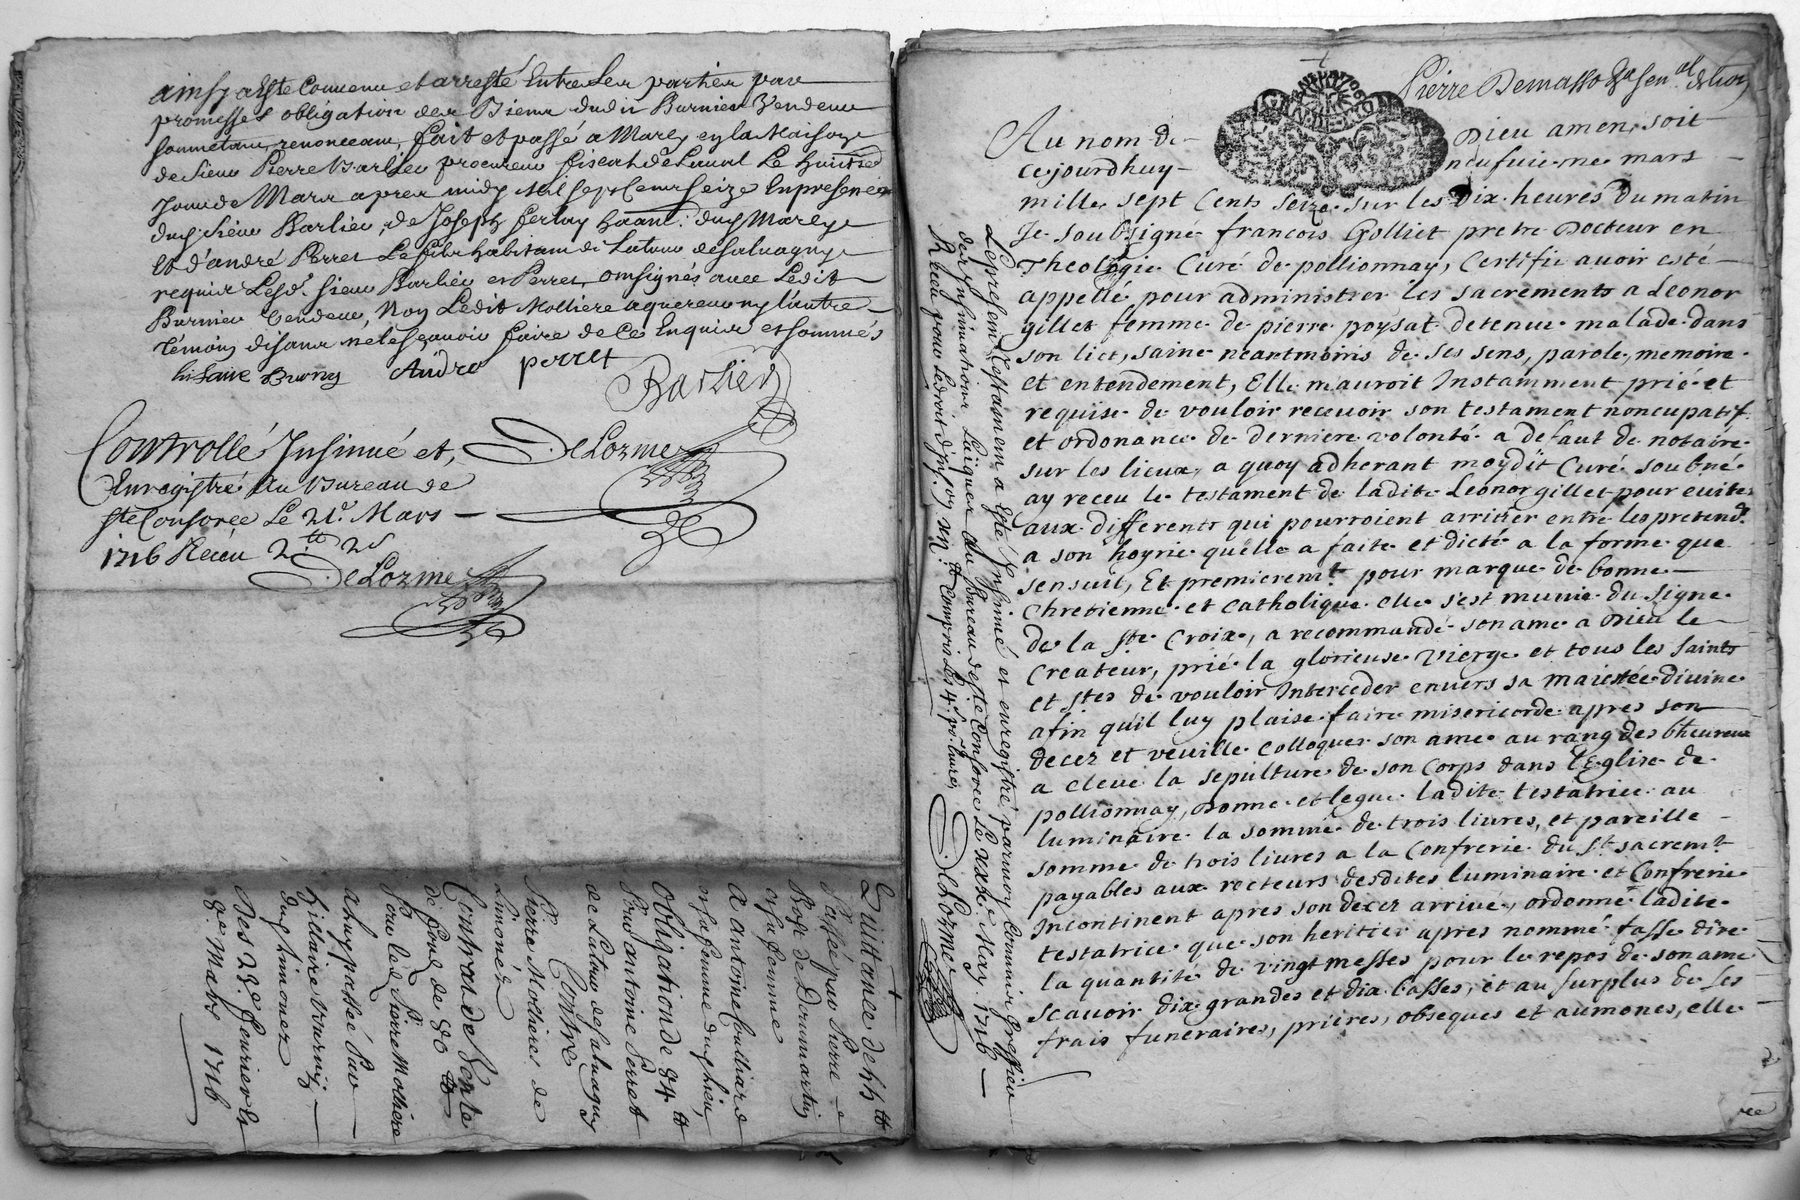 ainsy a esté Convenu et arresté Entre Les parties par
promesses obligation des Biens dudit Burnier Vendeur
soumetans, renonceans, fait et passé a Marcy en la Maison
de Sieur Pierre Barlier procureur fiscal de Laval Le huittie
Jour de Mars apres midy Mil sept Cens seize En presence
dud: sieur Barlier, de Joseph ferlay habant: dud Marcy
Et d'andré Perret Le fils habitans de Latour de Salvagny
requis Lesd: sieur Barlier et Perret, ont signés avec Ledit
Burnier Vendeur, Non Ledit Mollière acquereur ny l'autre
Témoin disant ne le sçavoir faire de ce Enquis et sommés
André perret
Barlier
DeLorme
Controllé Insinué et,
Enregistré Au Bureau de
ste Consorce Le 21e Mars
1716 Receu 2tt 2s
DeLorme
Quittance de
passée par Pierre
Rose de Drumartin
et sa femme
A antoine Coulliard
et sa femme dud lieu,
Obligation de 84 tt
Pour antoine Perret
de Latour de Salvagny
Contre
Pierre Mollière de
Limonez
Contrat de Vente
de fond de 80 tt
Pour led Sr. Pierre Molliere
a luy passée Par
hilaire Burnij
dud Limonez
Des 23e feurier et
8e Mars 1716
Pierre Demasso
Au nom de Dieu amen, soit
cejourdhuy neufuieme mars
mille sept Cents seize sur les dix heures du matin
Je soubsigné francois Golliet pretre Docteur en
Theologie Curé de pollionnay, Certifie auoir esté
appellé pour administrer les sacrements a Leonor
gillet femme de pierre poysat detenue malade dans
son lict, saine neantmoins de ses sens, parole, memoire
et entendement, Elle mauroit Instamment prié et
requise de vouloir receuoir son testament noncupatif
et ordonance de derniere volonté a defaut de notaire
sur les lieux, a quoy adherant moydit Curé soubné
ay receu le testament de ladite Leonor gillet pour euiter
aux differents qui pourroient arriuer entre les pretendts
a son hoyrie quelle a faite et dicté a la forme que
sensuit, Et premieremt pour marque de bonne
Chretienne et catholique elle s'est munie du signe
de la Ste Croix, a recommandé son ame a Dieu le
Createur, prié la glorieuse Vierge et tous les saints
et stes de vouloir Interceder enuers sa maiestée diuine
afin qu'il luy plaise faire misericorde apres son
decez et veuille colloquer son ame au rang des bheureux
a eleue la sepulture de son Corps dans l'Eglise de
pollionnay, Donne et legue ladite testatrice au
luminaire la somme de trois liures, et pareille
somme de trois liures a la Confrerie du St sacremt
payables aux recteurs desdites luminaire et Confrerie
Incontinent apres son decez arriué, ordonne ladite
testatrice que son heritier apres nommé fasse dire
la quantité de vingt messes pour le repos de son ame
scauoir dix grandes et dix basses, et au surplus de ses
frais funeraires, prieres, obseques et aumones, elle
Le present Testament a Esté Insinué et enregistré par moy Commis Greffier
des Insinuations Laiques du Bureau de ste Consorce Le xxie Mars 1716
Receu pour Le droit
Delorme